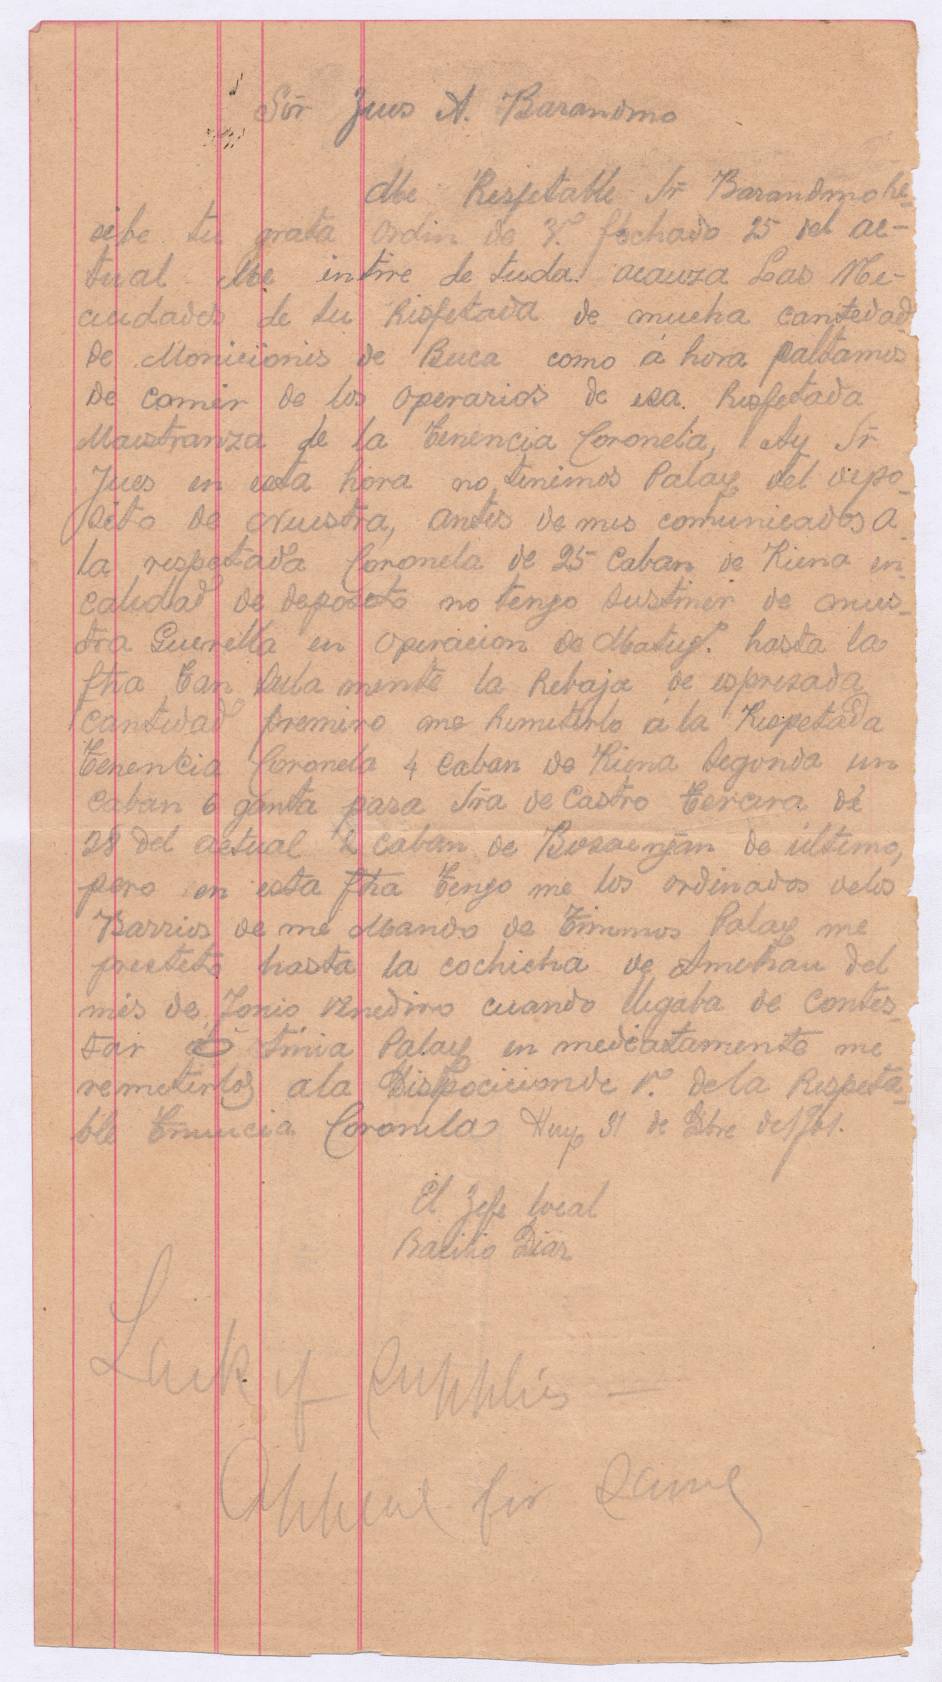 Sör Jues A. Barandmo
Me Respetable Sr Barandmo Re-
sibe tu grata ordin de 3º fechado 25 del ac-
tual Me intire de tuda acauza Las Ne-
ciudades de tu Rispetada de mucha cantedad
de Moniciones de Buca como á hora paltamos
de comer de los operarios de esa Respetada
Maestranza de la Tenencia Coronela, Ay Sr
Jues en esta hora no tinimos Palay del depo-
sito de Nuestra, antes de mis comunicados a
la respetada Coronela de 25 Caban de Riena en
calidad de deposito no tengo sustinir de mues-
tra Guerilla en operacion de hasta la
fha Tan sula mente la Rebaja de espresada
cantidad premiro me Rimitirlo á la Rispetada
Tenencia Coronela 4 caban de Riena Segonda un
caban 6 ganta para Sra de Castro Tercira de
28 del actual 2 caban de de último,
pero en esta fha Tengo me los ordinados delos
Barrios de me Mando de Tinimos Palay me
hasta la cochicha de del
mis de Jonio venediro cuando lligaba de contes-
tar tiniva Palay en medeatamente me
remitirlos ala Dispocicionde V. dela Respeta-
ble Tinincia Coronela 31 de de 1901.
El Jefe local
Basilio Diaz
Lack of supplies —
Appeal for same